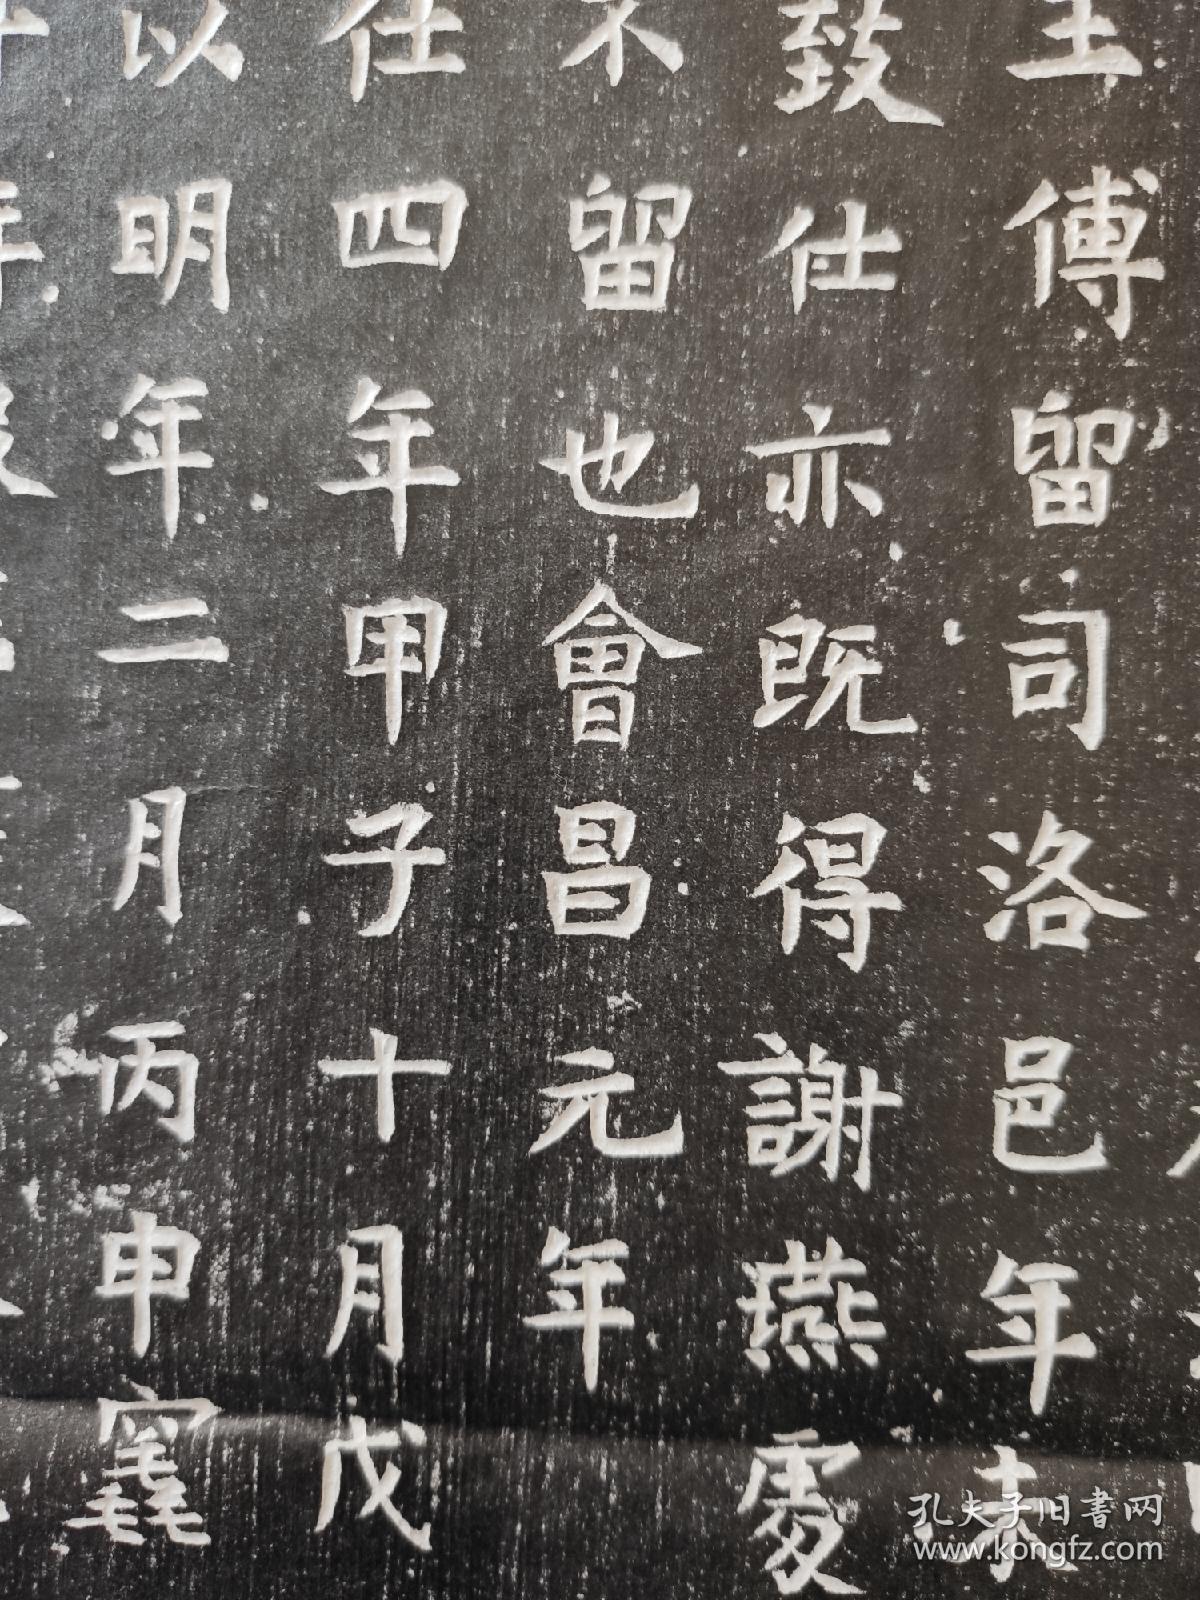 傅留司洛邑年未
致仕亦既得謝燕處
不留也會昌元年
仕四年甲子十月戊
以明年二月丙申窆
孔夫子旧書网
www.kongfz.com